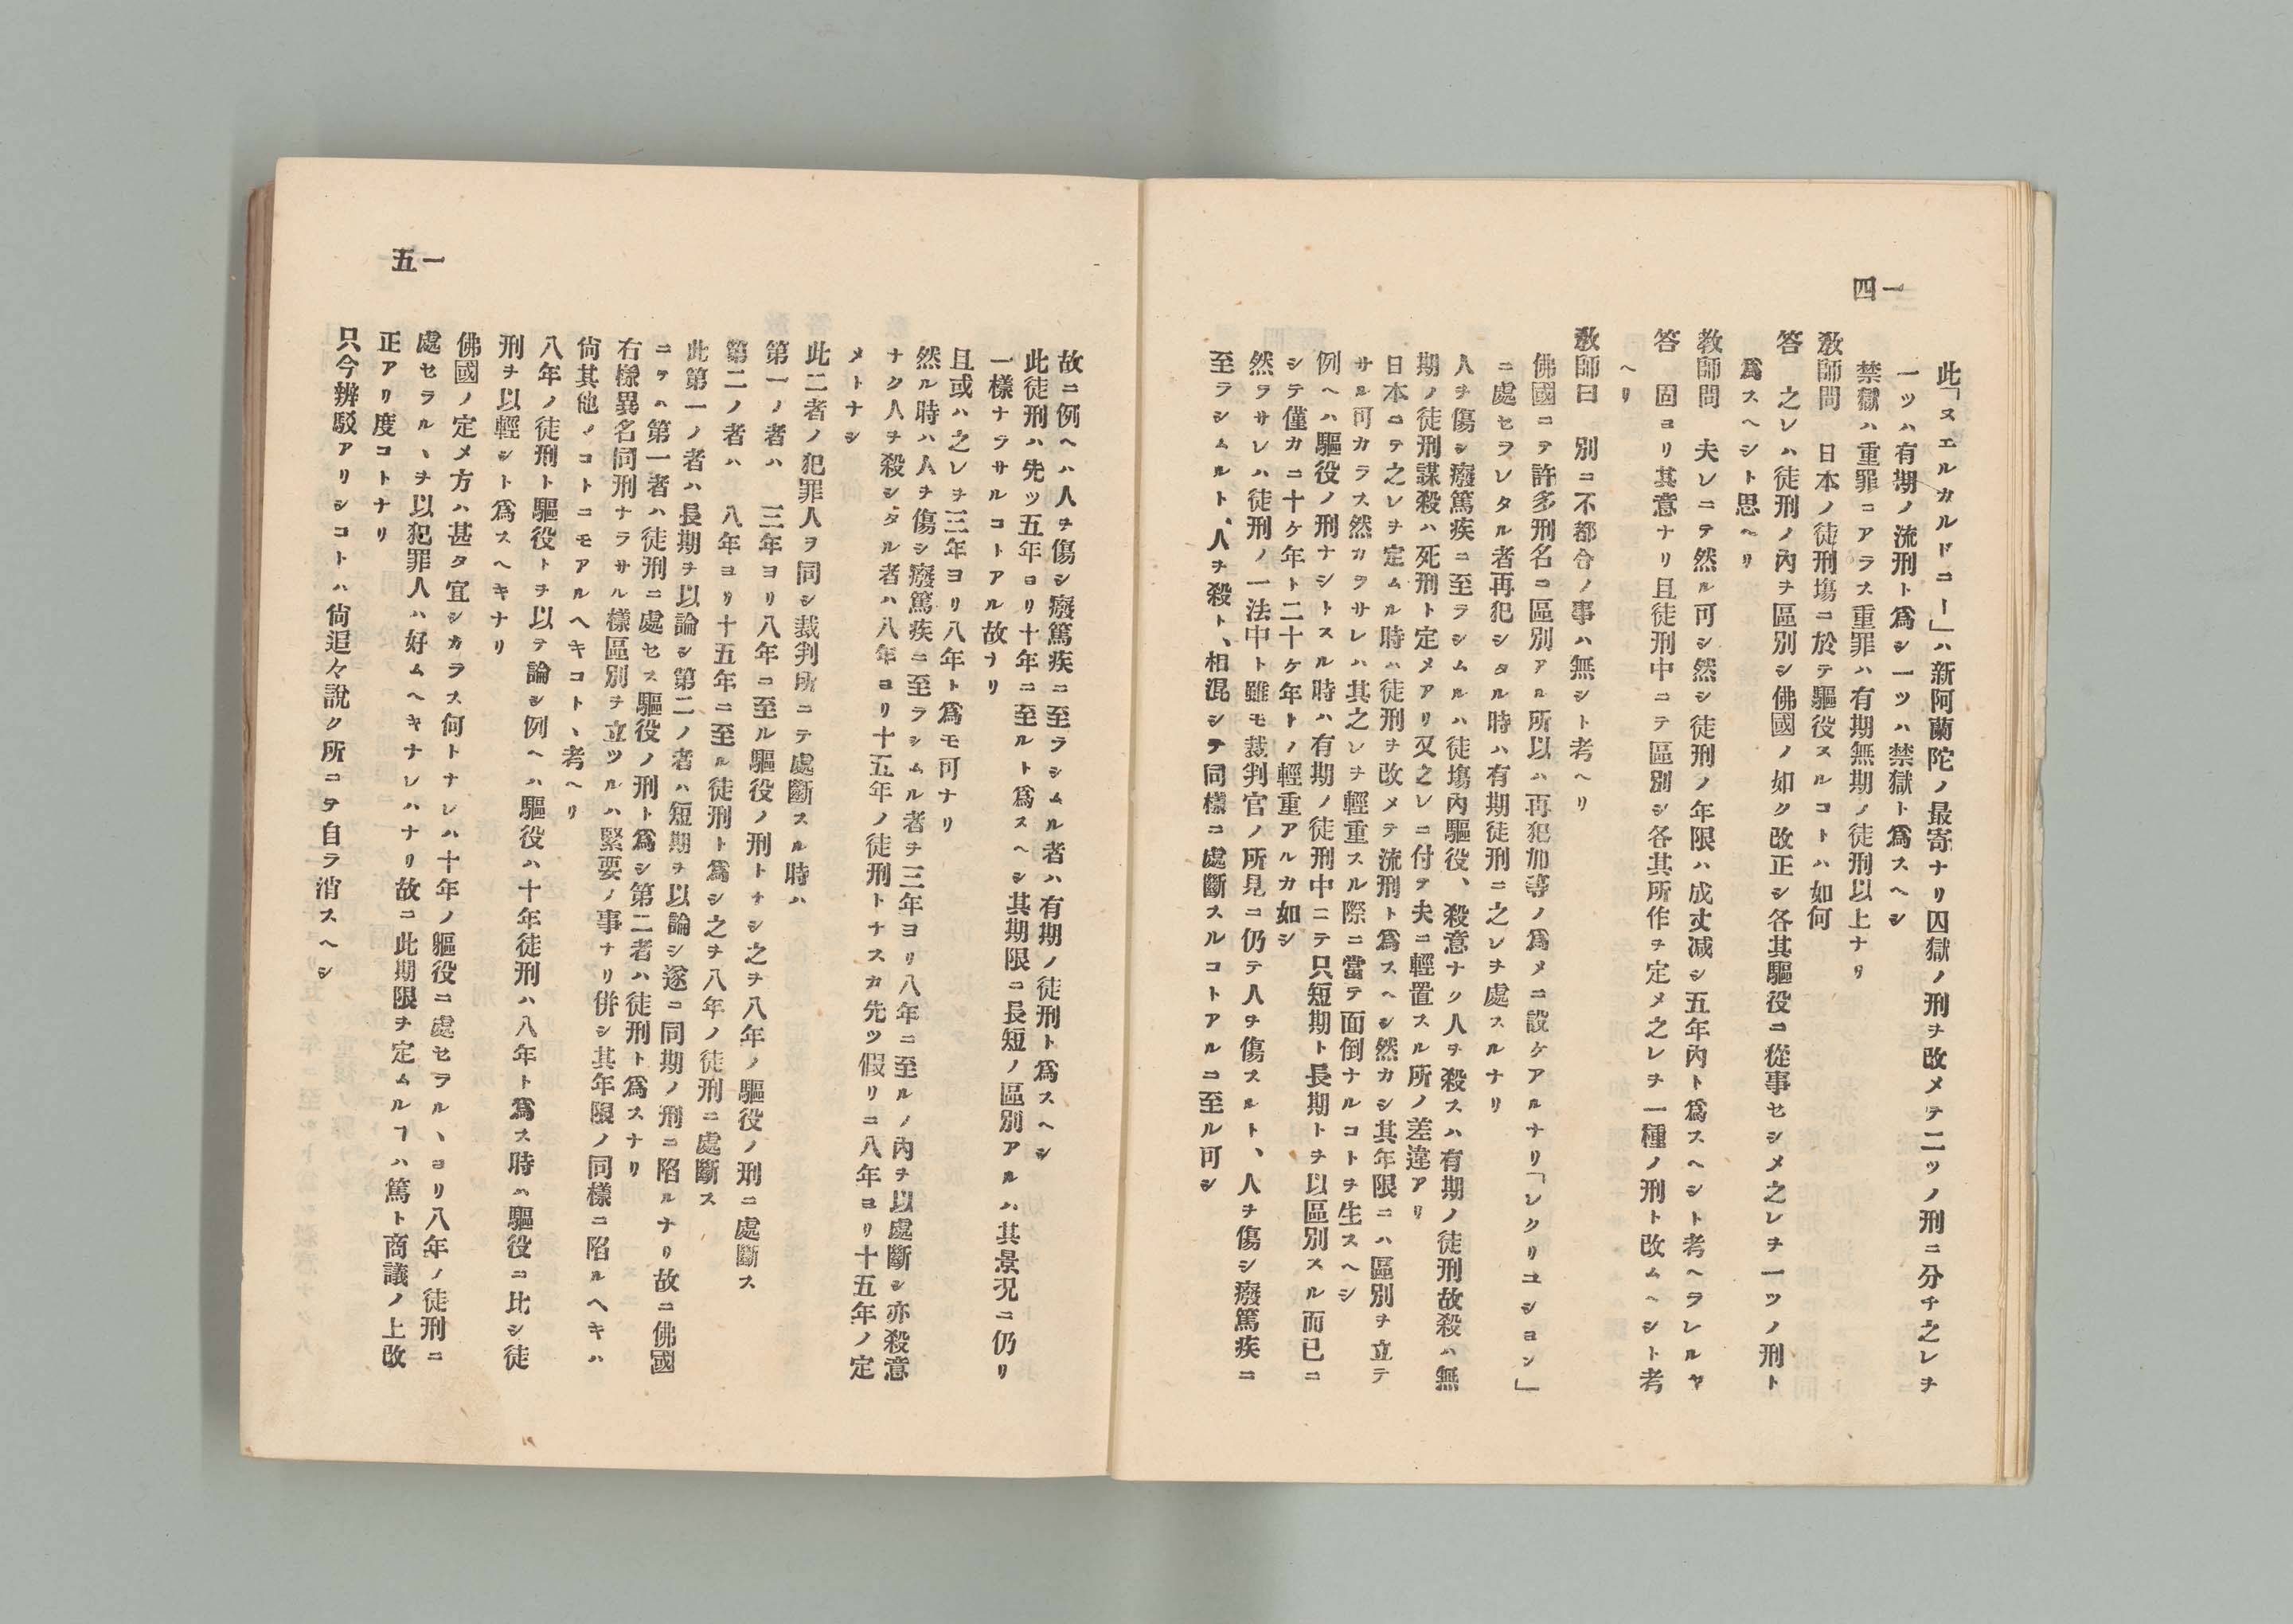 一四
此「ヌエルカルドニー」ハ新阿蘭陀ノ最寄ナリ囚獄ノ刑ヲ改メテ二ツノ刑ニ分チ之レヲ
一ツハ有期ノ流刑ト爲シ一ツハ禁獄ト爲スヘシ
禁獄ハ重罪ニアラス重罪ハ有期無期ノ徒刑以上ナリ
敎師問　日本ノ徒刑塲ニ於テ驅役スルコトハ如何
答　之レハ徒刑ノ內ヲ區別シ佛國ノ如ク改正シ各其驅役ニ從事セシメ之レヲ一ツノ刑ト
爲スヘシト思ヘリ
敎師問　夫レニテ然ル可シ然シ徒刑ノ年限ハ成丈減シ五年內ト爲スヘシト考ヘラレルヤ
答　固ヨリ其意ナリ且徒刑中ニテ區別シ各其所作ヲ定メ之レヲ一種ノ刑ト改ムヘシト考
ヘリ
敎師曰　別ニ不都合ノ事ハ無シト考ヘリ
佛國ニテ許多刑名ニ區別アル所以ハ再犯加等ノ爲メニ設ケアルナリ「レクリユシヨン」
ニ處セラレタル者再犯シタル時ハ有期徒刑ニ之レヲ處スルナリ
人ヲ傷シ癈篤疾ニ至ラシムルハ徒塲內驅役、殺意ナク人ヲ殺スハ有期ノ徒刑故殺ハ無
期ノ徒刑謀殺ハ死刑ト定メアリ又之レニ付テ夫ニ輕置スル所ノ差違アリ
日本ニテ之レヲ定ムル時ハ徒刑ヲ改メテ流刑ト爲スヘシ然カシ其年限ニハ區別ヲ立テ
サル可カラス然カラサレハ其之レヲ輕重スル際ニ當テ面倒ナルコトヲ生スヘシ
例ヘハ驅役ノ刑ナシトスル時ハ有期ノ徒刑中ニテ只短期ト長期トヲ以區別スル而已ニ
シテ僅カニ十ケ年ト二十ケ年トノ輕重アルカ如シ
然ラサレハ徒刑ノ一法中ト雖モ裁判官ノ所見ニ仍テ人ヲ傷スルト、人ヲ傷シ癈篤疾ニ
至ラシムルト、人ヲ殺ト、相混シテ同樣ニ處斷スルコトアルニ至ル可シ
一五
故ニ例ヘハ人ヲ傷シ癈篤疾ニ至ラシムル者ハ有期ノ徒刑ト爲スヘシ
此徒刑ハ先ツ五年ヨリ十年ニ至ルト爲スヘシ其期限ニ長短ノ區別アルハ其景况ニ仍リ
一樣ナラサルコトアル故ナリ
且或ハ之レヲ三年ヨリ八年ト爲モ可ナリ
然ル時ハ人ヲ傷シ癈篤疾ニ至ラシムル者ヲ三年ヨリ八年ニ至ルノ內ヲ以處斷シ亦殺意
ナク人ヲ殺シタル者ハ八年ヨリ十五年ノ徒刑トナスカ先ツ假リニ八年ヨリ十五年ノ定
メトナシ
此二者ノ犯罪人ヲ同シ裁判所ニテ處斷スル時ハ
第一ノ者ハ　三年ヨリ八年ニ至ル驅役ノ刑トナシ之ヲ八年ノ驅役ノ刑ニ處斷ス
第二ノ者ハ　八年ヨリ十五年ニ至ル徒刑ト爲シ之ヲ八年ノ徒刑ニ處斷ス
此第一ノ者ハ長期ヲ以論シ第二ノ者ハ短期ヲ以論シ遂ニ同期ノ刑ニ陷ルナリ故ニ佛國
ニテハ第一者ハ徒刑ニ處セス驅役ノ刑ト爲シ第二者ハ徒刑ト爲スナリ
右樣異名同刑ナラサル樣區別ヲ立ツルハ緊要ノ事ナリ併シ其年限ノ同樣ニ陷ルヘキハ
尙其他ノコトニモアルヘキコト、考ヘリ
八年ノ徒刑ト驅役トヲ以テ論シ例ヘハ驅役ハ十年徒刑ハ八年ト爲ス時ハ驅役ニ比シ徒
刑ヲ以輕シト爲スヘキナリ
佛國ノ定メ方ハ甚タ宜シカラス何トナレハ十年ノ軀役ニ處セラル、ヨリ八年ノ徒刑ニ
處セラル、ヲ以犯罪人ハ好ムヘキナレハナリ故ニ此期限ヲ定ムルヿハ篤ト商議ノ上改
正アリ度コトナリ
只今辨駁アリシコトハ尙追々說ク所ニテ自ラ消スヘシ